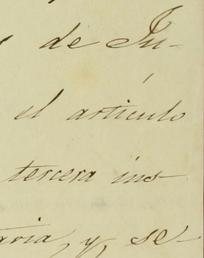 de Ju-
el articulo
tercera ins
aria y se